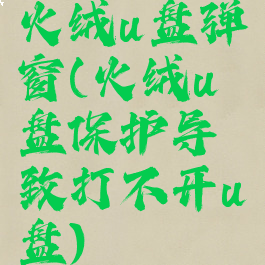 火绒u盘弹
窗(火绒u
盘保护导
致打不开u
盘)